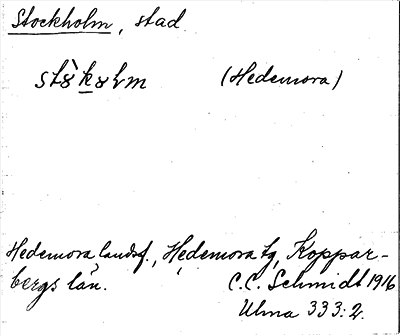 Stockholm, stad
stȣ̀kȣlm (Hedemora)
Hedemora landsf., Hedemora tg, Koppar-
bergs län. C.C. Schmidt 1916
Ulma 333:2.